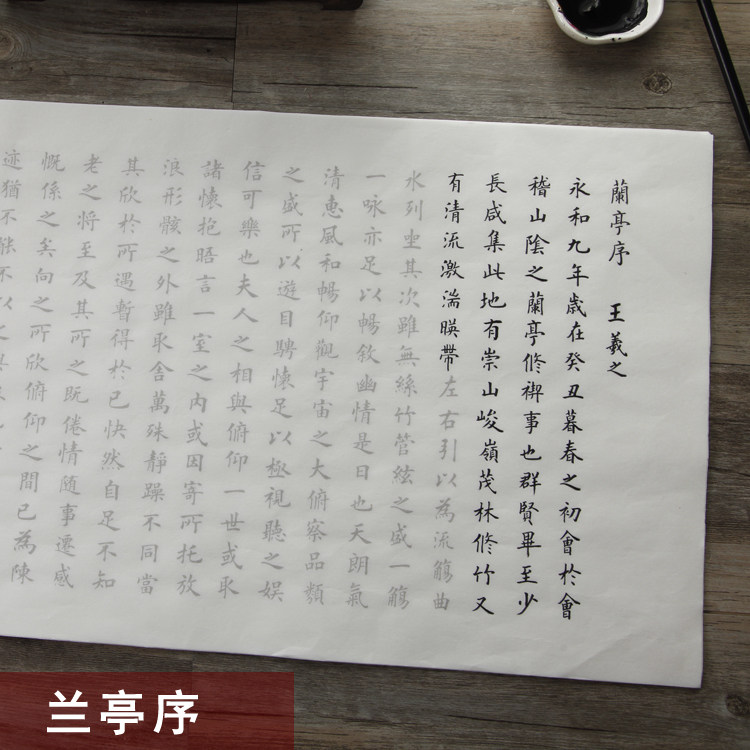 蘭亭序 王羲之
永和九年歲在癸丑暮春之初會扵會
稽山陰之蘭亭修禊事也群賢畢至少
長咸集此地有崇山峻嶺茂林修竹又
有清流激湍暎帶左右引以為流觴曲
水列坐其次雖無絲竹管絃之盛一觴
一咏亦足以暢敘幽情是日也天朗氣
清惠風和暢仰觀宇宙之大俯察品類
之盛所以遊目騁懷足以極視聽之娛
信可樂也夫人之相與俯仰一世或取
諸懷抱晤言一室之内或因寄所托放
浪形骸之外雖取舍萬殊靜躁不同當
其欣於所遇暫得扵己快然自足不知
老之将至及其所之既倦情随事遷感
慨係之矣向之所欣俯仰之間已為陳
迹猶不能不以之
兰亭序